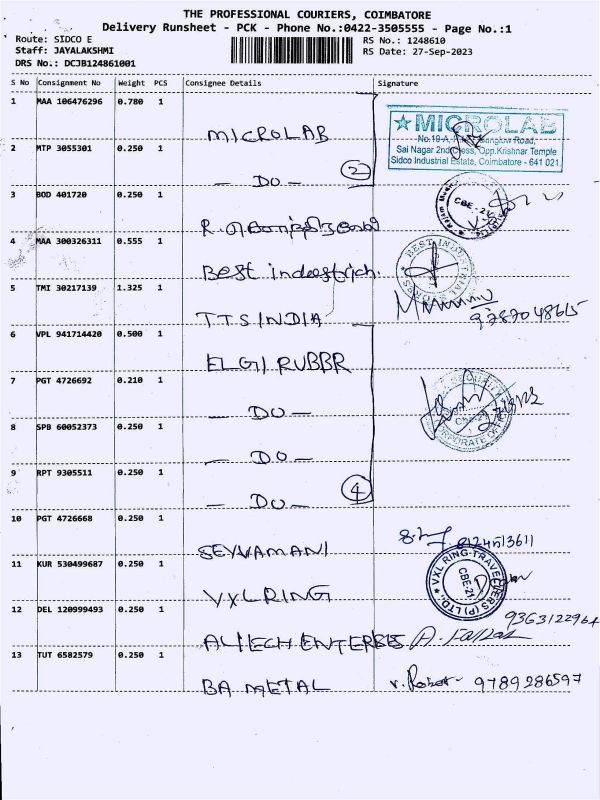 THE PROFESSIONAL COURIERS, COIMBATORE
Delivery Runsheet - PCK - Phone No.:0422-3505555 - Page No.:1
Route: SIDCO E
RS No.: 1248610
Staff: JAYALAKSHMI
RS Date: 27-Sep-2023
DRS No.: DCJB124861001
S No Consignment No Weight PCS Consignee Details Signature
1 MAA 106476296 0.780 1
MICROLAB
MICROLAB
Sai Nagar 2nd Cross, Opp.Krishnar Temple
Sidco Industrial Estate, Coimbatore - 641 021.
2 MTP 3055301 0.250 1
- DO -
2
3 BOD 401720 0.250 1
R.
CBE-21
4 MAA 300326311 0.555 1
Best
BEST INDUSTRIAL
5 TMI 30217139 1.325 1
TTS INDIA
9787048615
6 VPL 941714420 0.500 1
ELGI RUBBR
7 PGT 4726692 0.210 1
- DO -
8 SPB 60052373 0.250 1
- DO -
9 RPT 9305511 0.250 1
- DO -
4
10 PGT 4726668 0.250 1
SEYVAMANI
8124513611
11 KUR 530499687 0.250 1
VXLRING
VXL RING TRAVELLERS (P) LTD.,
CBE-21
12 DEL 120999493 0.250 1
9363122964
13 TUT 6582579 0.250 1
BA METAL
9789286597